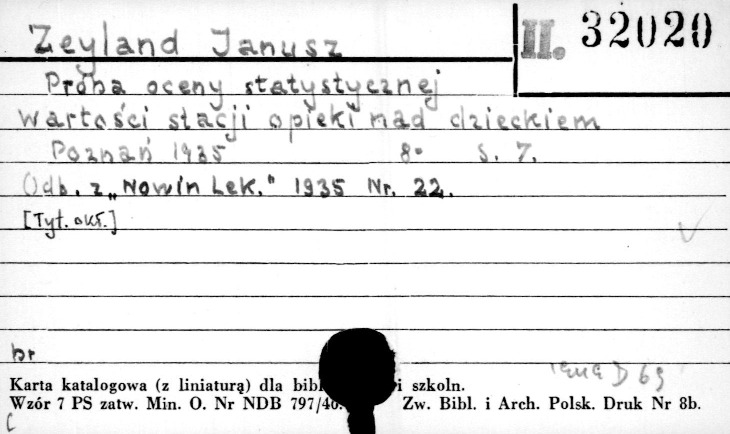 Zeyland Janusz
II. 32020
Próba oceny statystycznej
wartości stacji opieki nad dzieckiem
Poznań 1935 8° S. 7.
Odb. z „Nowin Lek." 1935 Nr. 22.
[Tyt. okł.]
br
Karta katalogowa (z liniaturą) dla i szkoln.
Wzór 7 PS zatw. Min. O. Nr NDB Zw. Bibl. i Arch. Polsk. Druk Nr 8b.
C